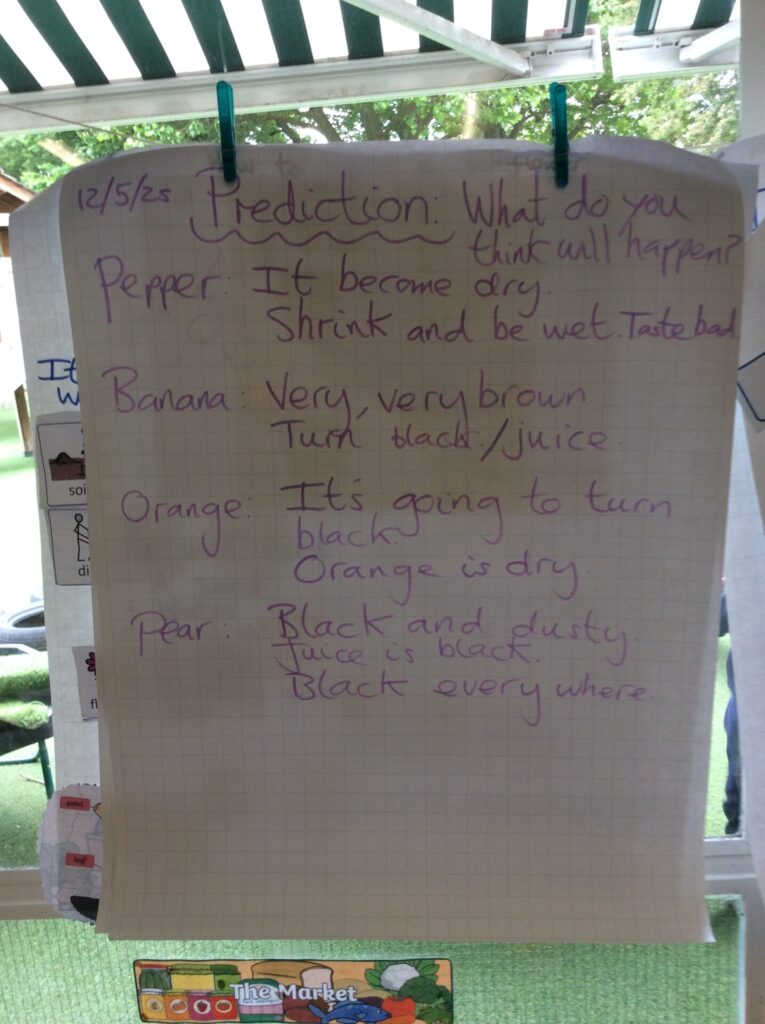 12/5/25 Prediction: What do you
think will happen?
Pepper: It become dry.
Shrink and be wet. Taste bad.
Banana: Very, very brown
Turn black./juice.
Orange: It's going to turn
black.
Orange is dry.
Pear: Black and dusty.
Juice is black.
Black everywhere.
It
W
soi
di
fl
petal
leaf
The Market